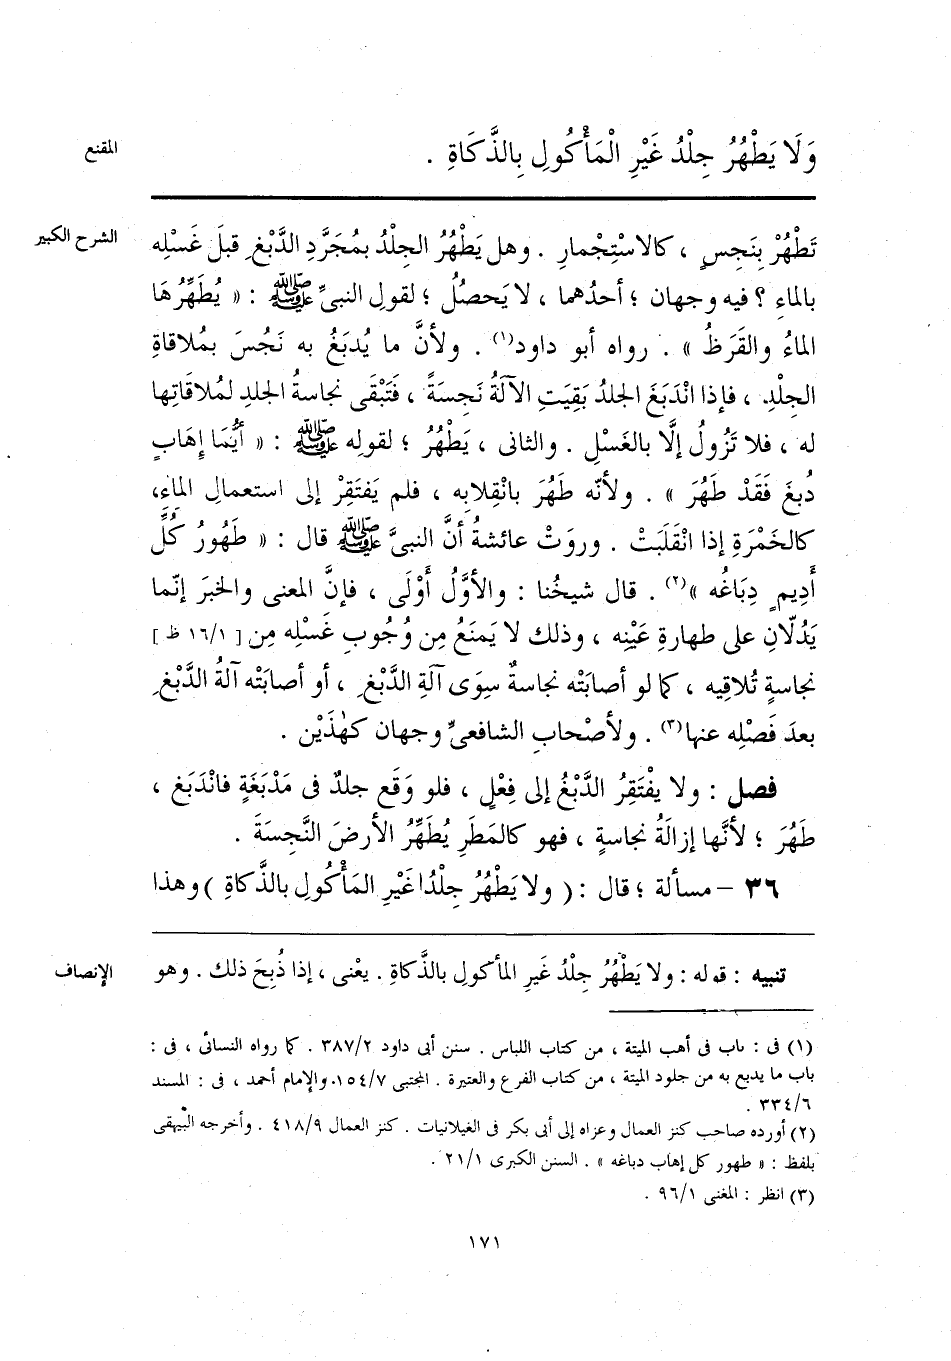 المقنع
وَلَا يَطْهُرُ جِلْدُ غَيْرِ الْمَأْكُولِ بِالذَّكَاةِ .
الشرح الكبير
تَطْهُرْ بِنَجِسٍ ، كالاسْتِجْمارِ . وهل يَطْهُرُ الجِلْدُ بمُجَرَّدِ الدَّبْغِ قبلَ غَسْلِه
بالماءِ ؟ فيه وجهان ؛ أحدُهما ، لا يَحصُلُ ؛ لقولِ النبىِّ ﷺ : « يُطَهِّرُهَا
الماءُ والقَرَظُ » . رواه أبو داود(١) . ولأنَّ ما يُدبَغُ به نَجُسَ بمُلاقاةِ
الجِلْدِ ، فإذا انْدَبَغَ الجلدُ بَقِيَتِ الآلَةُ نَجِسَةً ، فَتَبْقَى نجاسةُ الجلدِ لمُلاقَاتِها
له ، فلا تَزُولُ إلَّا بالغَسْلِ . والثانى ، يَطْهُرُ ؛ لقولِه ﷺ : « أَيُّمَا إهَابٍ
دُبغَ فَقَدْ طَهُرَ » . ولأنَّه طَهُرَ بانْقِلابِه ، فلم يَفتَقِرْ إلى استعمالِ الماءِ،
كالخَمْرَةِ إذا انْقَلَبَتْ . وروَتْ عائشةُ أنَّ النبىَّ ﷺ قال : « طَهُورُ كُلِّ
أَدِيمٍ دِبَاغُه »(٢) . قال شيخُنا : والأوَّلُ أَوْلَى ، فإنَّ المعنى والخبَرَ إنّما
يَدُلّانِ على طهارةِ عَيْنِه ، وذلك لا يَمنَعُ مِن وُجُوبِ غَسْلِه مِن [ ١٦/١ ظ ]
نجاسةٍ تُلاقِيه ، كما لو أصابَتْه نجاسةٌ سِوَى آلَةِ الدَّبْغِ ، أو أصابَتْه آلةُ الدَّبْغِ
بعدَ فَصْلِه عنها(٣) . ولأصْحابِ الشافعىِّ وجهان كهٰذَيْن .
فصل : ولا يفْتَقِرُ الدَّبْغُ إلى فِعْلٍ ، فلو وَقَع جلدٌ فى مَدْبَغَةٍ فانْدَبَغ ،
طَهُرَ ؛ لأنَّها إزالَةُ نجاسةٍ ، فهو كالمَطَرِ يُطَهِّرُ الأرضَ النَّجِسَةَ .
٣٦ – مسألة ؛ قال : ( ولا يَطْهُرُ جِلْدُ غَيْرِ المَأْكُولِ بالذَّكاةِ ) وهذا
الإنصاف
تنبيه : قوله : ولا يَطْهُرُ جِلْدُ غَيرِ المأكولِ بالذَّكاةِ . يعْنى ، إذا ذُبِحَ ذلك . وهو
(١) فى : باب فى أهب الميتة ، من كتاب اللباس . سنن أبى داود ٣٨٧/٢ . كما رواه النسائى ، فى :
باب ما يدبع به من جلود الميتة ، من كتاب الفرع والعتيرة . المجتبى ١٥٤/٧. والإمام أحمد ، فى : المسند
٣٣٤/٦ .
(٢) أورده صاحب كنز العمال وعزاه إلى أبى بكر فى الغيلانيات . كنز العمال ٤١٨/٩ . وأخرجه البيهقى
بلفظ : « طهور كل إهاب دباغه » . السنن الكبرى ٢١/١ .
(٣) انظر : المغنى ٩٦/١ .
١٧١